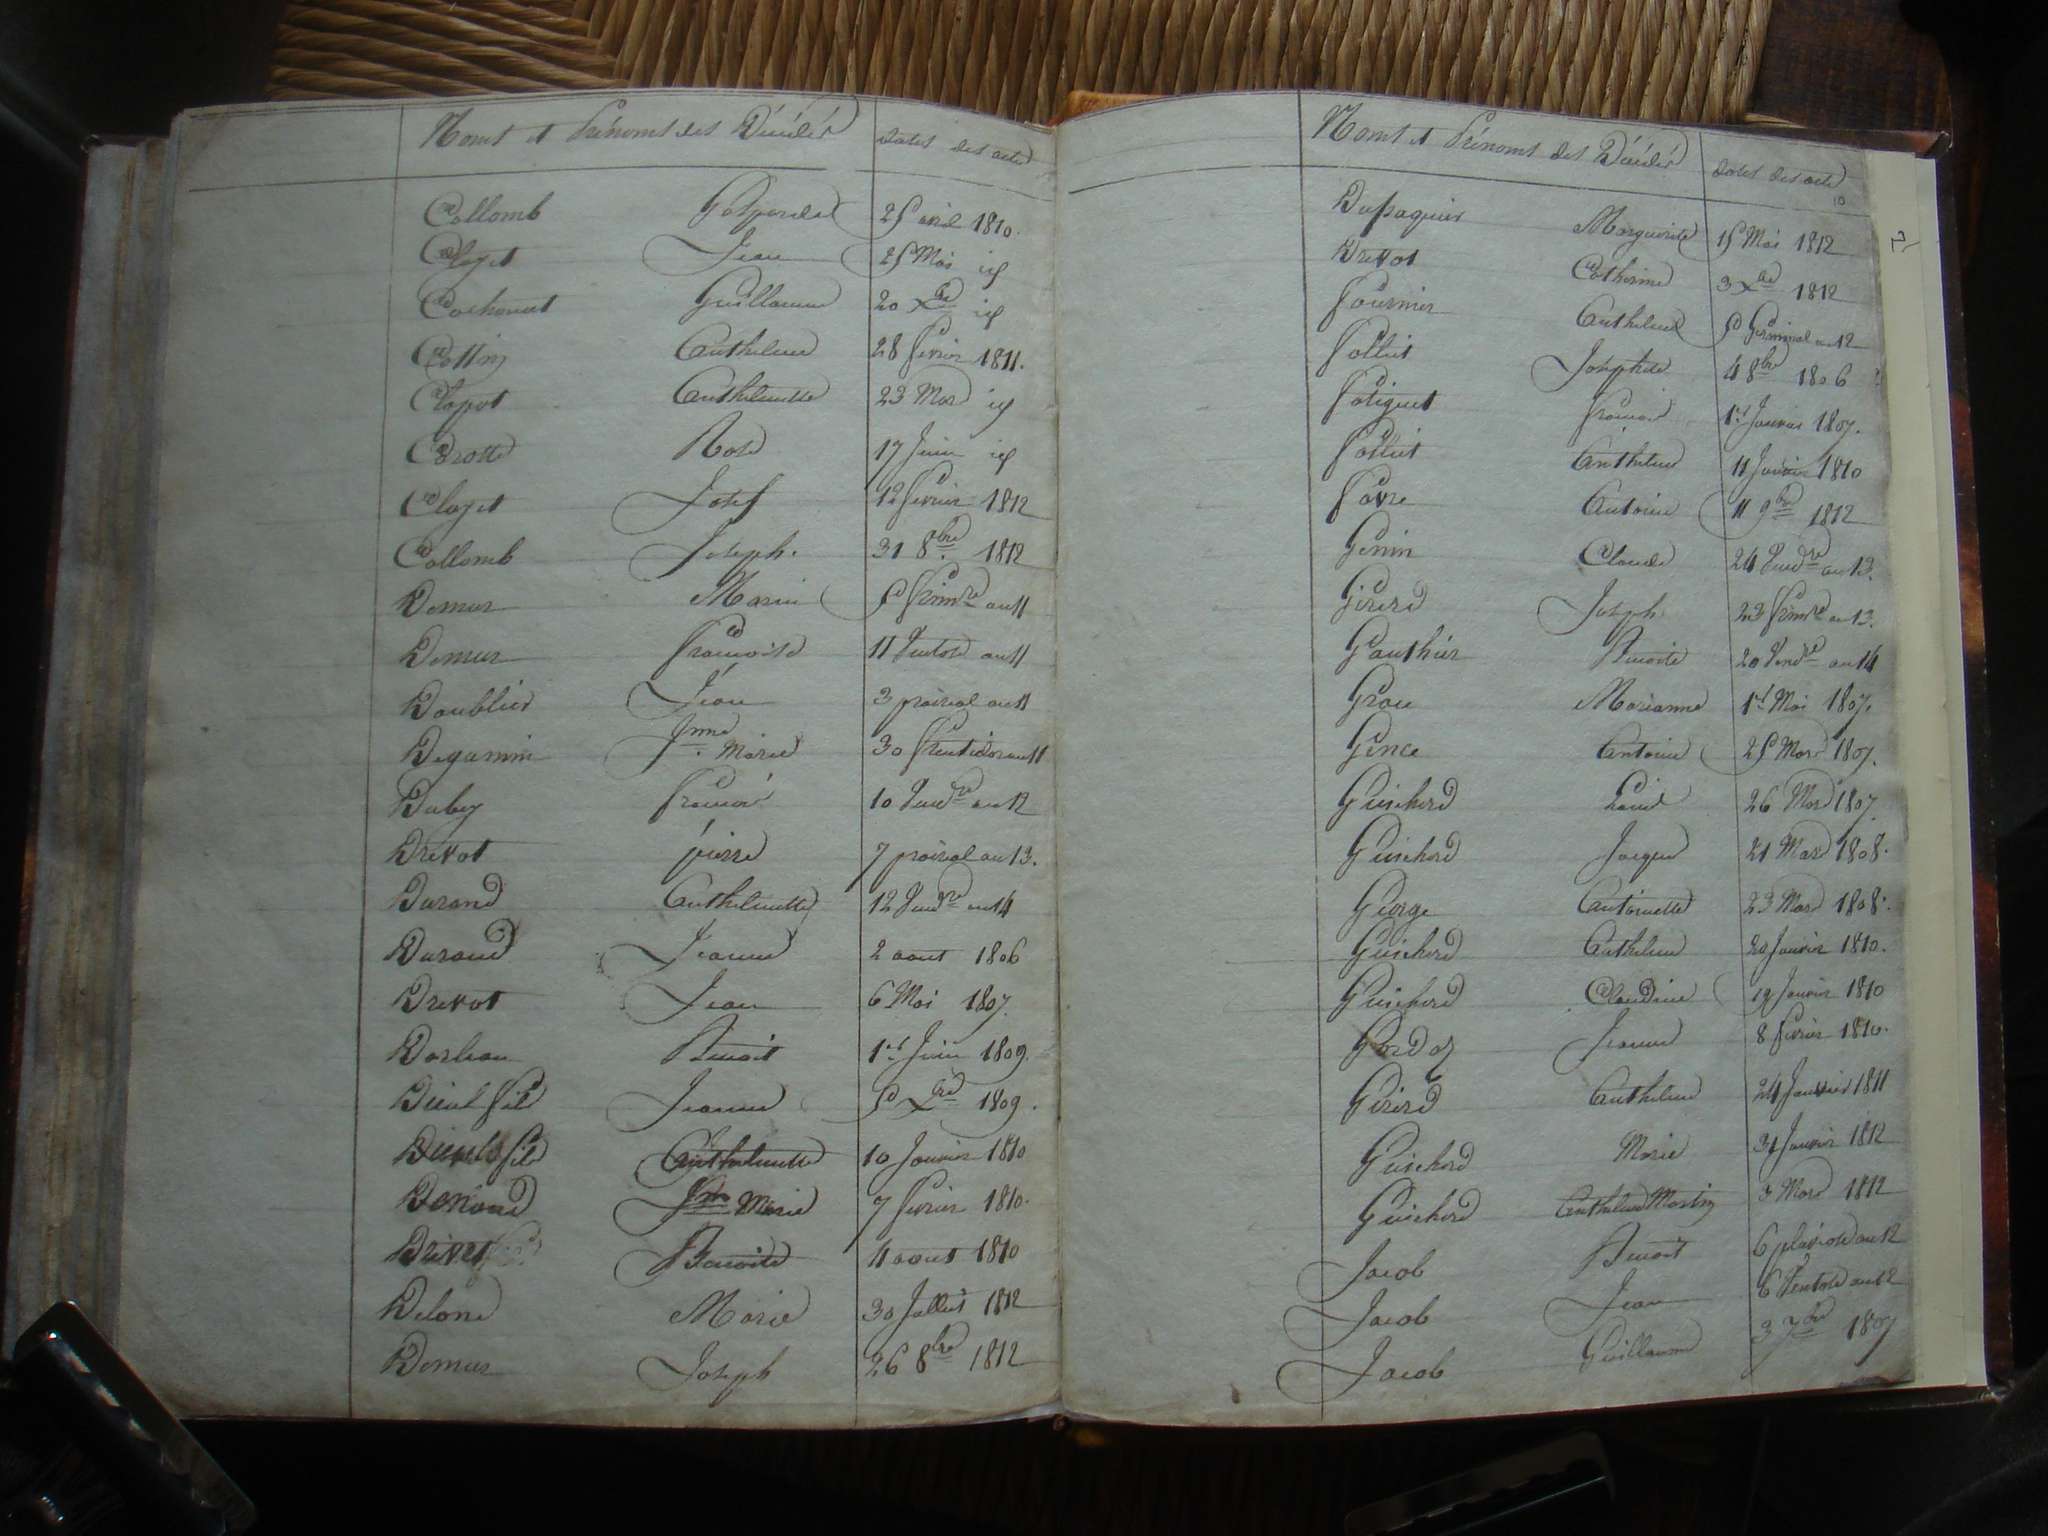 Noms et Prénoms des Décédés Dates des actes
Collomb 25 avril 1810.
Clajet Jean 25 Mai id
Cochonat Guillaume 20 Xbre id
Cottin Anthelme 28 fevrier 1811.
Chapot Anthelmette 23 Mars id
Crotte Rose 17 Juin id
Clajet Josef 12 fevrier 1812
Collomb Joseph. 31 8bre 1812
Demur Marie 5 frimre an 11
Demur francoise 11 Ventose an 11
Doublier Jean 3 prairial an 11
Degamin Jnne Marie 30 fructidor an 11
Duby francois 10 Vendre an 12
Drevot pierre 7 prairial an 13.
Durand Anthelmette 12 Vendre an 14
Durand Jeanne 2 aout 1806
Drevot Jean 6 Mai 1807.
Benoit 1er Juin 1809.
Jeanne 5 Xbre 1809.
Anthelmette 10 Janvier 1810
Jnne Marie 7 fevrier 1810.
Drevet Benoite 4 aout 1810
Delone Marie 30 Juillet 1812
Demur Joseph 26 8bre 1812
Noms et Prénoms des Décédés Dates des actes
10
Dussaquier Marguerite 15 Mai 1812
Drevot Catherine 3 Xbre 1812
fournier Anthelme 5 Germinal an 12
follict Josephte 4 8bre 1806
fatiguet francois 1er Janvier 1807.
follict Anthelme 11 Janvier 1810
favre Antoine 11 9bre 1812
Genin Claude 24 Vendre an 13.
Girerd Joseph 23 frimre an 13.
Gauthier Benoite 20 Vendre an 14
Grau Marianne 1er Mai 1807.
Gence Antoine 25 Mars 1807.
Guicherd Louise 26 Mars 1807
Guicherd Jacques 21 Mars 1808.
George Antoinette 23 Mars 1808.
Guicherd Anthelme 20 Janvier 1810.
Guicherd Claudine 19 Janvier 1810
Gordoz Jeanne 8 fevrier 1810.
Girerd Anthelme 24 Janvier 1811
Guicherd Marie 31 Janvier 1812
Guicherd Anthelme Martin 3 Mars 1812
Jacob Benoit 6 pluviose an 12
Jacob Jean 6 Ventose an 12
Jacob Guillaume 3 7bre 1807